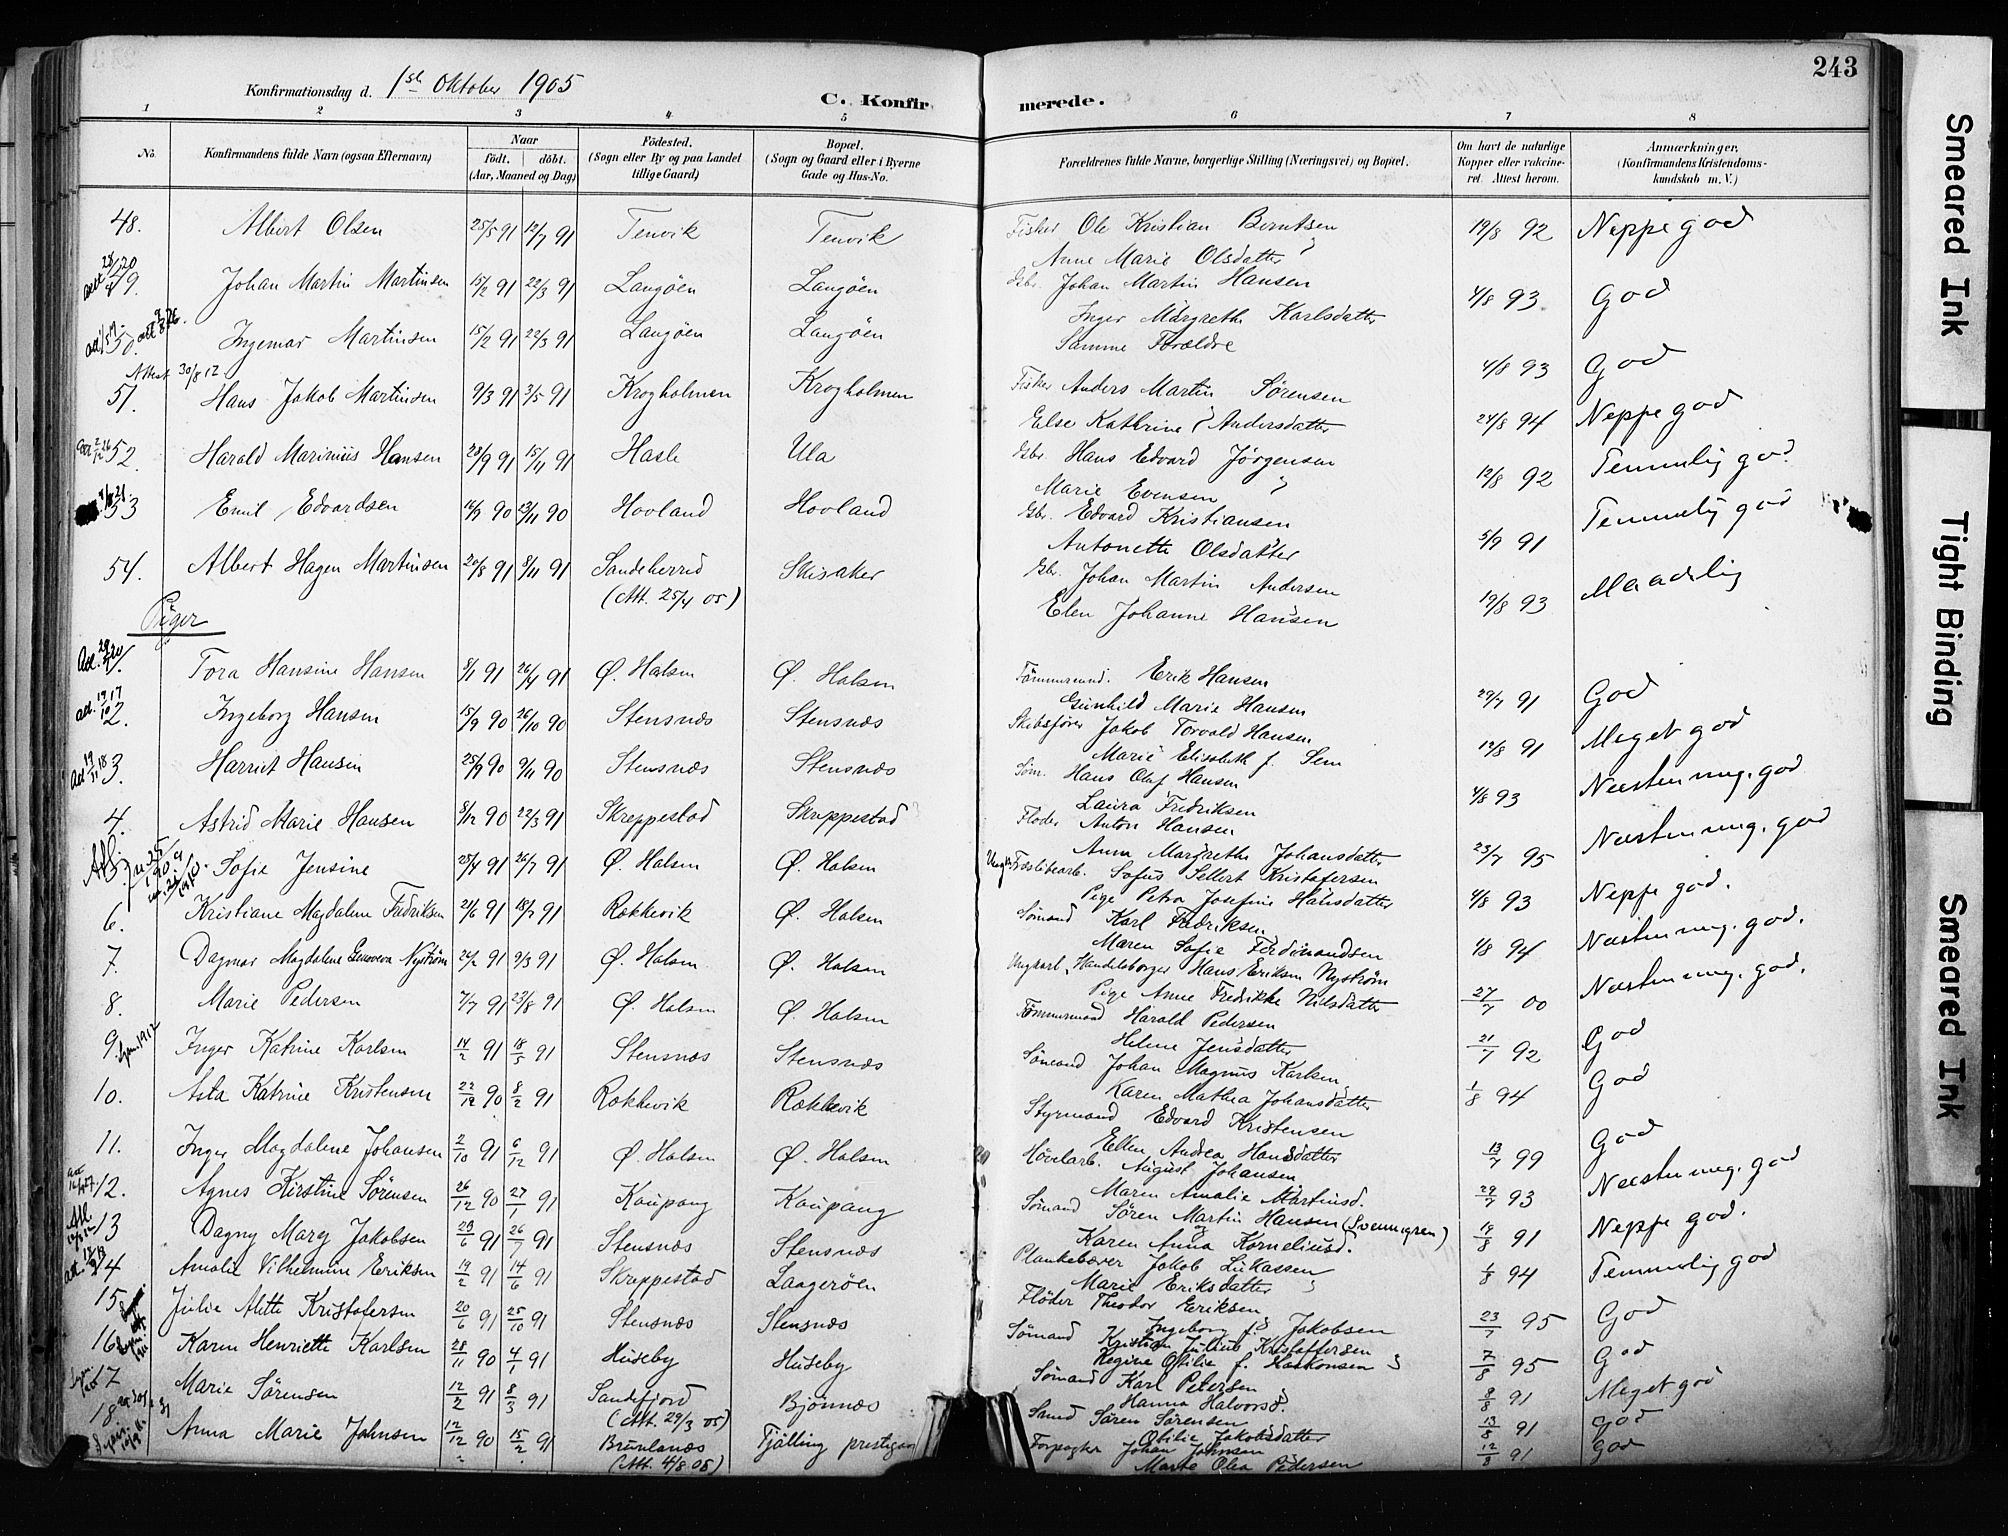 243
Konfirmationsdag d. 1ste Oktober 1905
C. Konfirmerede.
1 2 3 4 5 6 7 8
No. Konfirmandens fulde Navn (ogsaa Efternavn) Naar født. døbt. (Aar, Maaned og Dag) Fødested. (Sogn eller By og paa Landet tillige Gaard) Bopæl. (Sogn og Gaard eller i Byerne Gade og Hus-No. Forældrenes fulde Navne, borgerlige Stilling (Næringsvei) og Bopæl. Om havt de naturlige Kopper eller vakcineret. Attest herom. Anmærkninger, (Konfirmandens Kristendomskundskab m. V.)
48. Albert Olsen 25/5 91 12/7 91 Tenvik Tenvik Fisker Ole Kristian Berntsen 19/8 92 Neppe god
Anne Marie Olsdatter
49. Johan Martin Martinsen 15/2 91 22/3 91 Langöen Langöen Gbr. Johan Martin Hansen 4/8 93 God
Inger Margrethe Karlsdatter
50. Ingemar Martinsen 15/2 91 22/3 91 Langöen Langöen Samme Forældre 4/8 93 God
Attest 30/8 12
51. Hans Jakob Martinsen 9/3 91 3/5 91 Krogholmen Krogholmen Fisker Anders Martin Sørensen 24/8 94 Neppe god
Else Kathrine Andersdatter
52. Harald Marinius Hansen 28/9 91 15/11 91 Hasle Ula Gbr. Hans Edvard Jörgensen 12/8 92 Temmelig god
Marie Evensen
53 Emil Edvardsen 16/9 90 23/11 90 Hovland Hovland Gbr. Edvard Kristiansen 5/9 91 Temmelig god
Antonette Olsdatter
54. Albert Hagen Martinsen 20/8 91 8/11 91 Sandeherred Skisaker Gbr. Johan Martin Andersen 19/8 93 Maadelig
(Att. 25/4 05) Elen Johanne Hansen
Piger
1. Tora Hansine Hansen 8/1 91 26/4 91 Ø. Halsen Ø. Halsen Tömmermand. Erik Hansen 29/7 91 God
Gunhild Marie Hansen
2. Ingeborg Hansen 15/9 90 26/10 90 Stensnæs Stensnæs Skibsfører Jakob Torvald Hansen 19/8 91 Meget god
Marie Elisabeth f. Sem
3. Harriet Hansen 25/9 90 9/11 90 Stensnæs Stensnæs Søm. Hans Olaf Hansen 4/8 93 Næsten meg. god
Laura Fredriksen
4. Astrid Marie Hansen 8/12 90 22/3 91 Skreppestad Skreppestad Fløder Anton Hansen 23/7 95 Næsten meg. god
Anna Margrethe Johansdatter
5. Sofie Jensine 25/4 91 26/7 91 Ø. Halsen Ø. Halsen Sofus Sellert Kristofersen 4/8 93 Neppe god.
Pige Petra Josefine Halsdatter
6. Kristiane Magdalene Fredriksen 21/6 91 18/7 91 Rækkevik Ø. Halsen Sømand Karl Fredriksen 1/8 94 Næsten meg. god.
Maren Sofie Ferdinandsen
7. Dagmar Magdalene Genoveva Nyström 24/2 91 9/3 91 Ø. Halsen Ø. Halsen Ungkarl, Handelsborger Hans Eriksen Nyström 27/7 00 Næsten meg. god.
Pige Anne Fredrikke Nilsdatter
8. Marie Pedersen 7/7 91 23/8 91 Ø. Halsen Ø. Halsen Tømmermand Harald Pedersen 21/7 92 God
Helene Jensdatter
9. Inger Katrine Karlsen 14/2 91 18/5 91 Stensnæs Stensnæs Sømand Johan Magnus Karlsen 1/8 94 God
Karen Mathea Johansdatter
10. Asta Katrine Kristensen 22/12 90 8/2 91 Rækkevik Rækkevik Styrmand Edvard Kristensen 13/7 99 God
Ellen Andrea Hansdatter
11. Inger Magdalene Johansen 2/10 91 6/12 91 Ø. Halsen Ø. Halsen Høvelarb. August Johansen 29/7 93 Næsten meg. god
Maren Amalie Martinsd.
12. Agnes Kirstine Sørensen 26/12 90 27/1 91 Kaupang Kaupang Sømand Søren Martin Hansen (Svenngren) 19/8 91 Neppe god.
Karen Anna Korneliusd.
13 Dagny Mary Jakobsen 28/6 91 26/7 91 Stensnæs Stensnæs Plankebærer Jakob Lukassen 1/8 94 Temmelig god
Marie Eriksdatter
14 Amalie Vilhelmine Eriksen 19/2 91 14/6 91 Skreppestad Laagerøen Fløder Theodor Eriksen 23/7 95 God
Ingeborg f. Jakobsen
15 Julie Alette Kristofersen 20/6 91 25/10 91 Stensnæs Stensnæs Sømand Kristian Julius Kristoffersen 7/8 95 God
Regine Otilie f. Haakonsen
16 Karen Henriette Karlsen 28/11 90 4/1 91 Huseby Huseby Sømand Karl Petersen 8/8 91 Meget god
Hanna Halvorsd.
17 Marie Sørensen 12/2 91 8/3 91 Sandefjord Bjønnes Smed Søren Sørensen 13/8 91 God
(Att. 29/3 05) Otilie Jakobsdatter
18 Anna Marie Johnsen 12/12 90 15/2 91 Brunlanes Tjölling prestegaard Forpagter Johan Johnsen 12/8 91 God
(Att. 4/8 05) Marte Olea Pedersen
Smeared Ink
Tight Binding
Smeared Ink